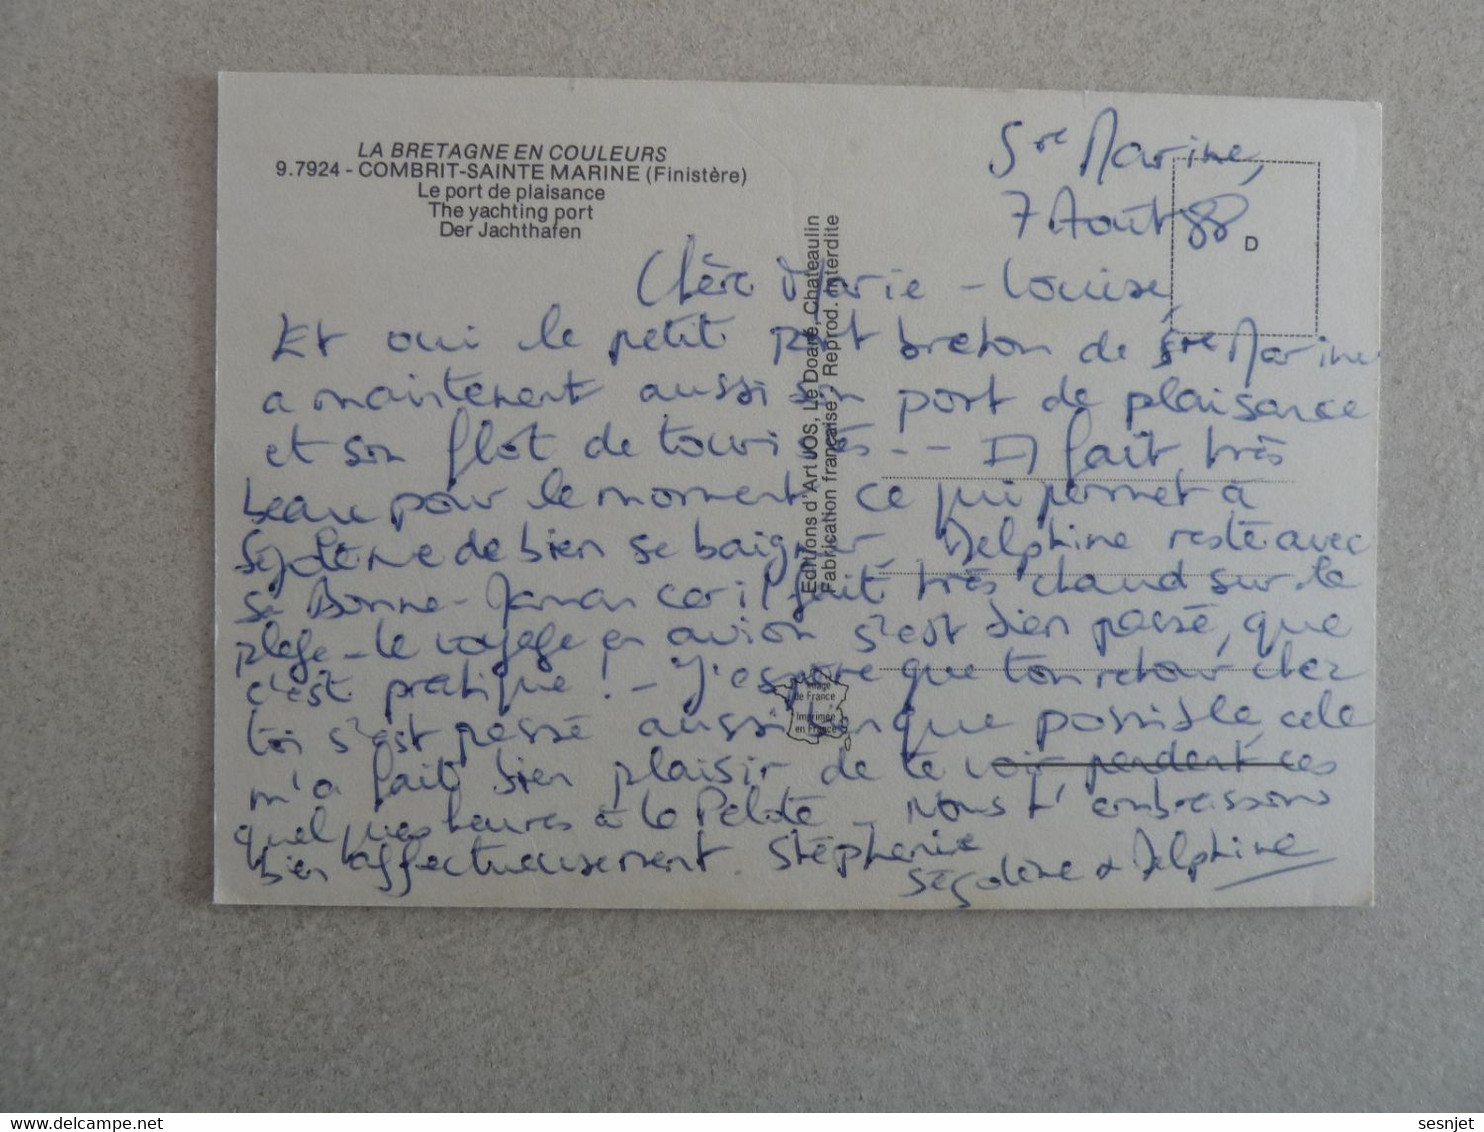 LA BRETAGNE EN COULEURS
9.7924 - COMBRIT-SAINTE MARINE (Finistère)
Le port de plaisance
The yachting port
Der Jachthafen
Ste Marine,
7 Août 88
D
Chère Marie-Louise,
Et oui le petit port breton de Ste Marine
a maintenant aussi son port de plaisance
et son flot de touristes.-- Il fait très
beau pour le moment ce qui permet à
Ségolène de bien se baigner, Delphine reste avec
sa Bonne-Maman car il fait très chaud sur la
plage - Le voyage en avion s'est bien passé, que
c'est pratique ! - J'espère que ton retour chez
toi s'est passé aussi bien que possible, cela
m'a fait bien plaisir de te voir pendant ces
quelques heures à la Pelote - Nous t'embrassons
bien affectueusement. Stéphanie
Ségolène & Delphine
Editions d'Art JOS, Le Doaré, Chateaulin
Fabrication française - Reprod. Interdite
Image
de France
Imprimée
en France
sesnjet